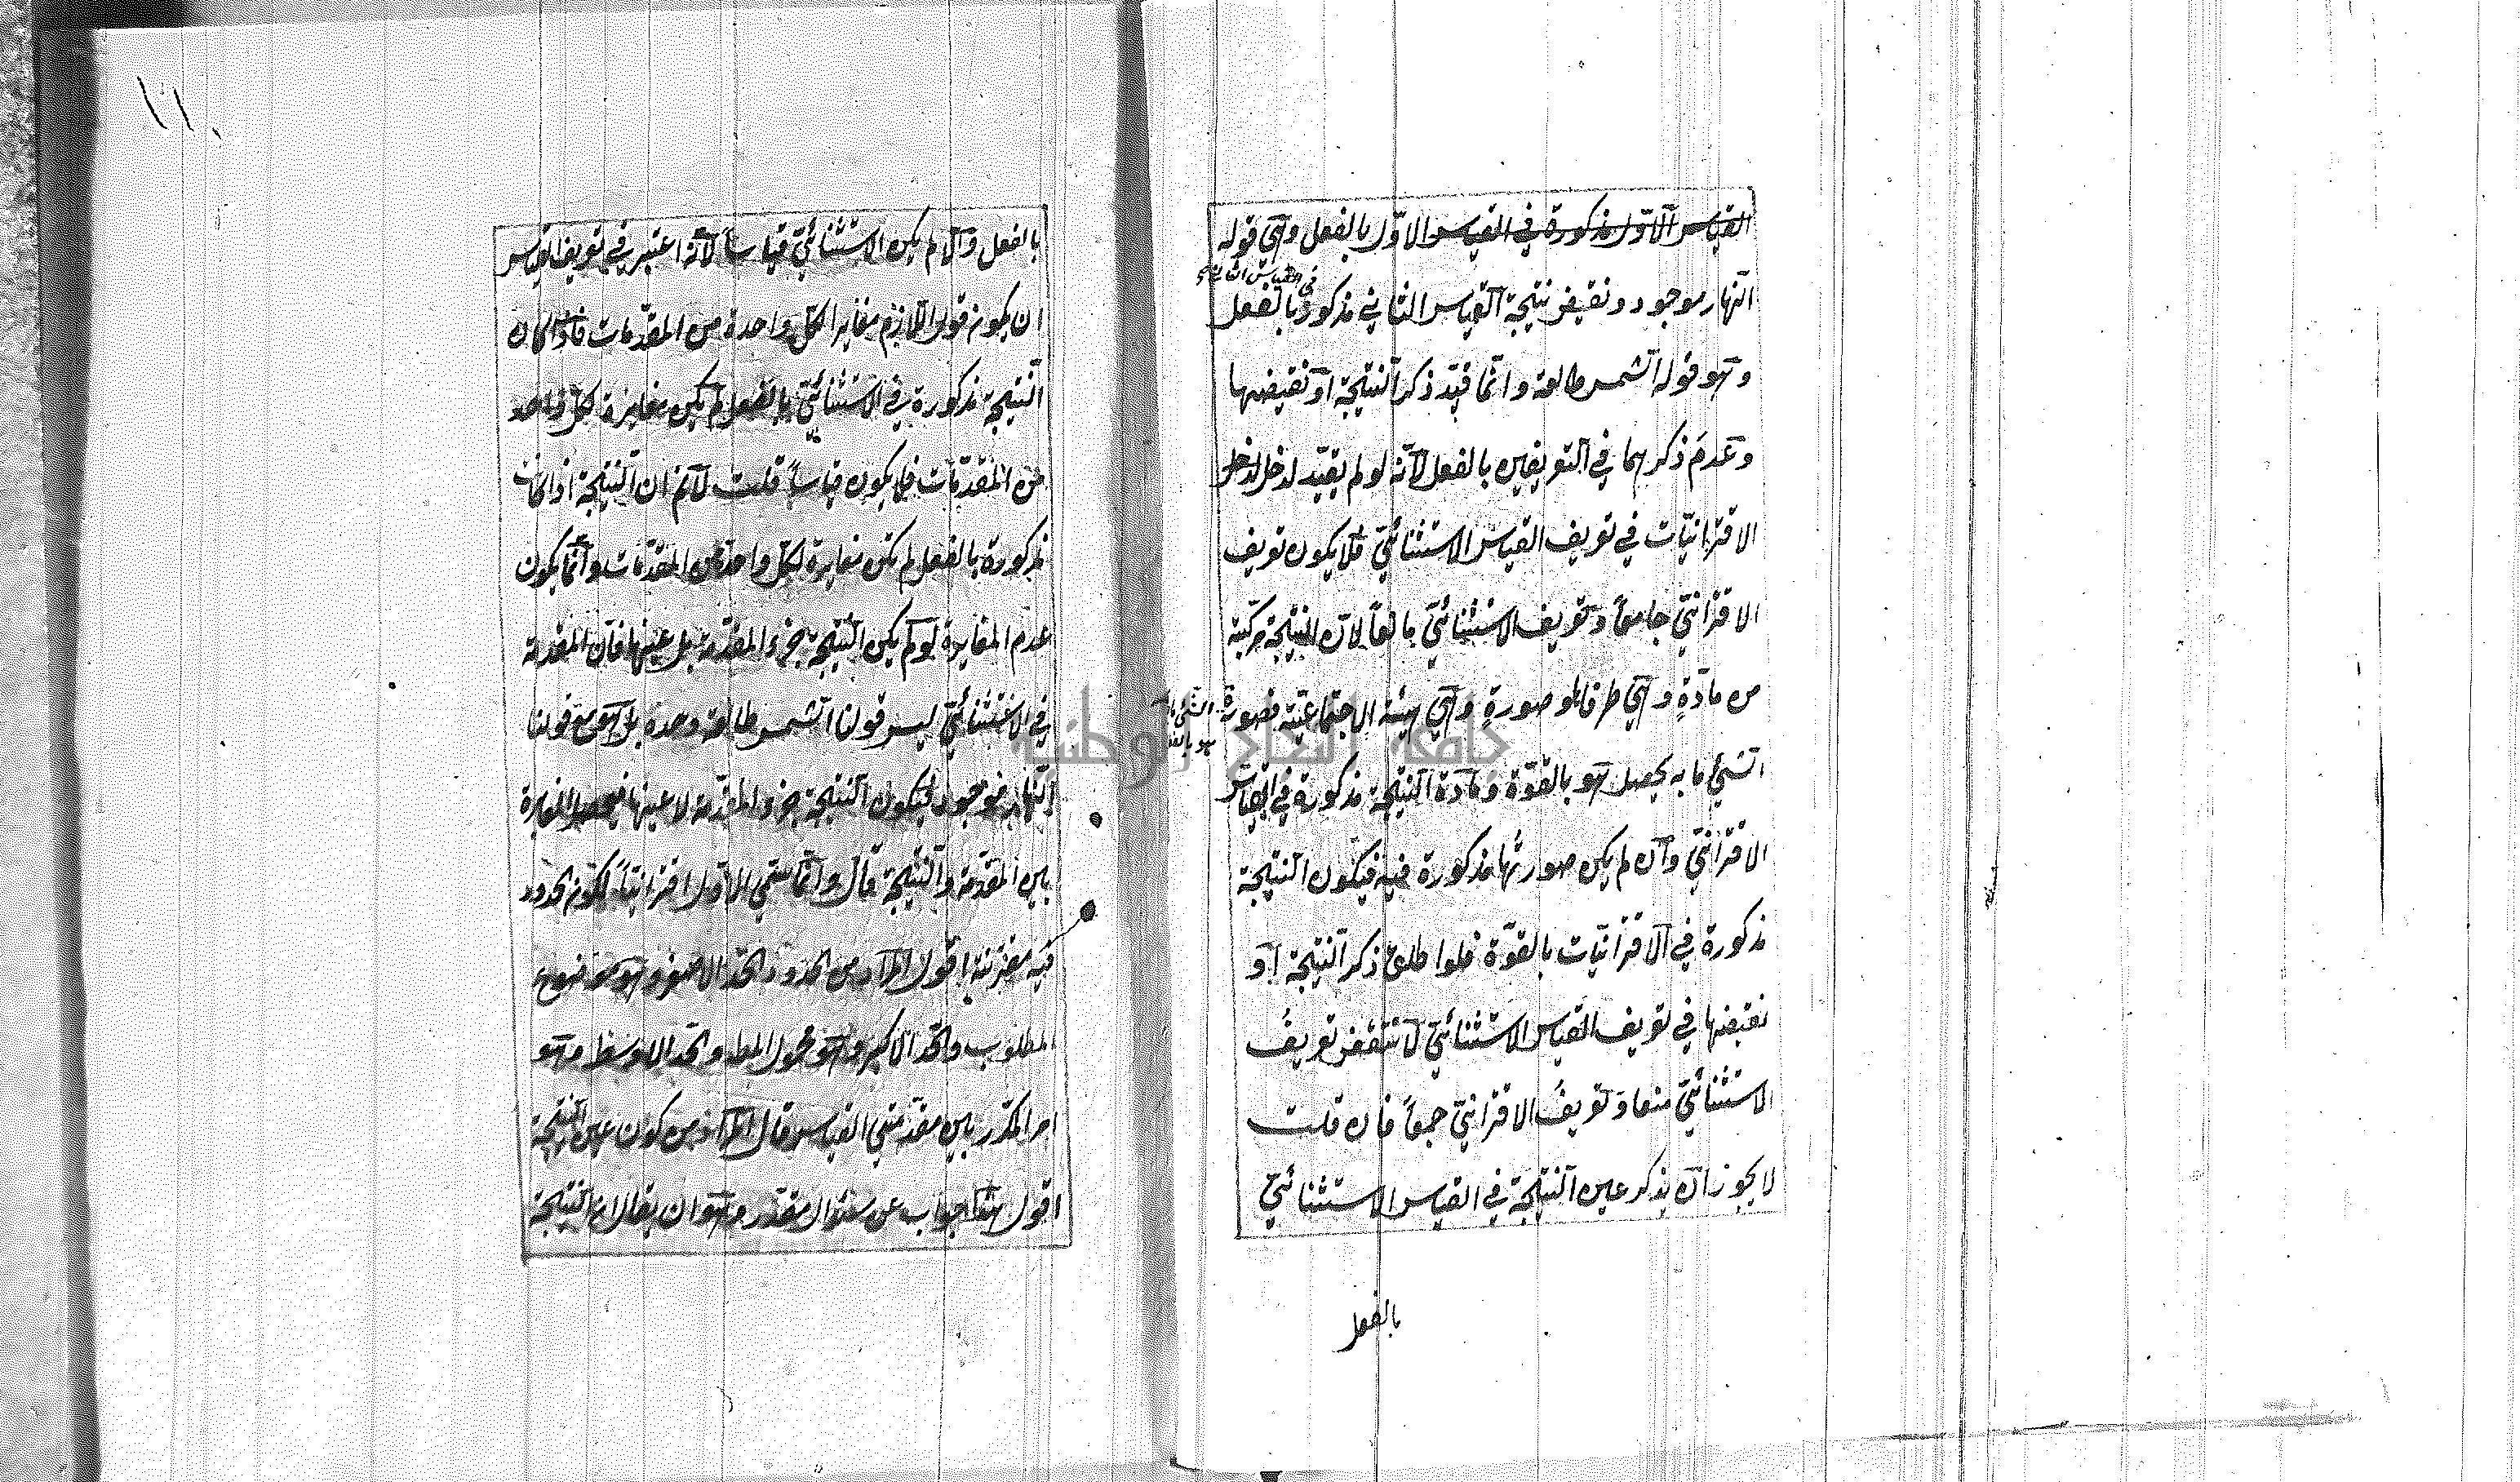 القياس الاوّل مذكورة في القياس الاوّل بالفعل وهي قوله
في القياس الثاني
النهار موجود ونقيض نتيجة القياس الثاني مذكور بالفعل
وهو قوله الشمس طالعة وانّما قيّد ذكر النتيجة او نقيضها
وعدم ذكرهما في التعريفين بالفعل لانّه لو لم يقيّد لدخل
الاقترانيّات في تعريف القياس الاستثنائيّ فلا يكون تعريف
الاقترانيّ جامعاً وتعريف الاستثنائيّ مانعاً لانّ النتيجة مركّبة
من مادّةٍ وهي طرفاها وصورةٍ وهي هيئة الاجتماعيّة فصورة
الشيئ ما به يحصل هو بالقوّة ومادّة النتيجة مذكورة في القياس
الاقترانيّ وان لم يكن صورتُها مذكورة فيه فيكون النتيجة
مذكورة في الاقترانيّات بالقوّة فلو اطلق ذكر النتيجة او
نقيضها في تعريف القياس الاستثنائيّ لانتقض تعريفُ
الاستثنائيّ منعا وتعريفُ الاقترانيّ جمعاً فان قلت
لا يجوز ان يذكر عين النتيجة في القياس الاستثنائيّ
بالفعل
١١
بالفعل والّا لم يكن الاستثنائيّ قياساً لانّه اعتبر في تعريف القياس
ان يكون قول اللازم مغايرا لكلّ واحدة من المقدّمات فاذا كان
النتيجة مذكورة في الاستثنائيّ بالفعل لم يكن مغايرة لكلّ واحد
من المقدّمات فلا يكون قياساً قلت لانم ان النتيجة اذا كانت
مذكورة بالفعل لم تكن مغايرة لكلّ واحدة من المقدّمات وانّما يكون
عدم المغايرة لو لم يكن النتيجة جزء المقدّمة بل عينها فان المقدمة
في الاستثنائيّ ليس قولنا الشمس طالعة وحده بل هو مع قولنا
النهار موجود فيكون النتيجة جزء المقدّمة لا عينها فيحصل المغايرة
بين المقدمة والنتيجة قال وانّما سمّي الاوّل اقترانيّاً لكون حدود
فيه مقترنة اقول المراد من الحدود الحدّ الاصغر وهو موضوع
المطلوب والحدّ الاكبر وهو محمول المط والحد الاوسط وهو
امر المكرّر بين مقدّمتي القياس قال المراد من كون عين النتيجة
اقول هذا جواب عن سئوال مقدّر وهو ان يقال ان النتيجة